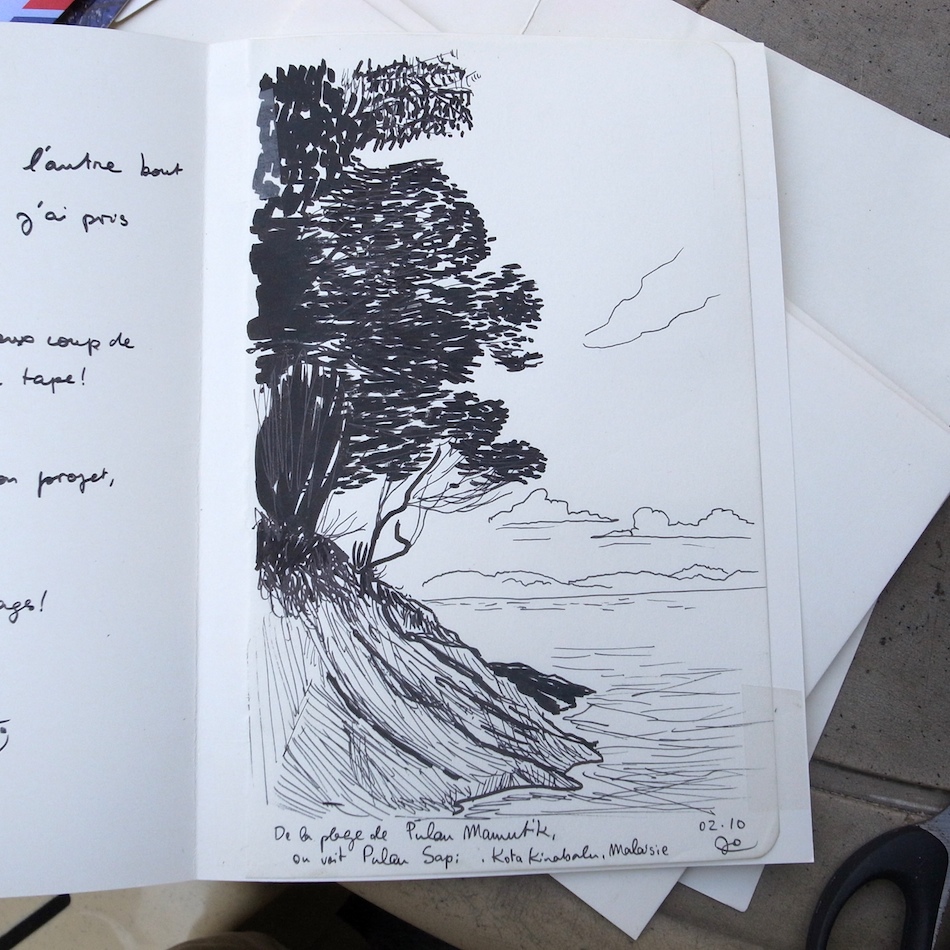 l'autre bout
j'ai pris
coup de
tape!
projet,
De la plage de Pulau Mamutik,
on voit Pulau Sapi. Kota Kinabalu, Malaisie
02.10